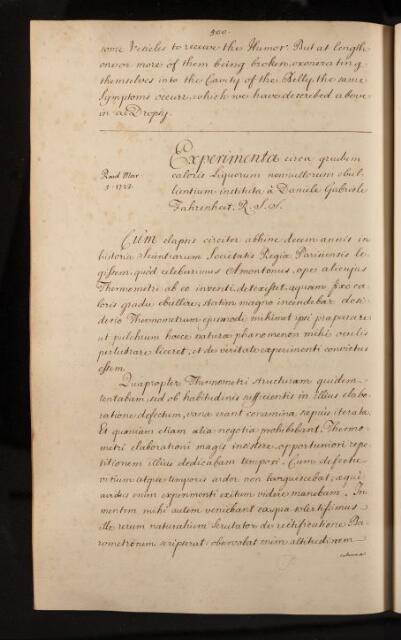 500
some Vesicles to receive the Humor. But at length
one or more of them being broken, exonerating
themselves into the Cavity of the Belly, the same
Symptoms occurr, which we have described above
in a Dropsy.
Experimenta circa gradum
caloris Liquorum nonnullorum ebul-
lientium instituta à Daniele Gabriele
Fahrenheit. R.S.S.
Read Mar
5. 1723.
Cum elapsis circiter abhinc decem annis in
historia Scientiarum Societatis Regiæ Parisiensis le-
gissem, quòd celeberrimus Amontonius, ope alicujus
Thermometri ab eo inventi, detexisset, aquam fixo ca-
loris gradu ebullire; statim magno incendebar desi-
derio Thermometrum ejusmodi mihimet ipsi præparare
ut pulchrum hocce naturæ phænomenon mihi oculis
perlustrare liceret, et de veritate experimenti convictus
essem.
Quapropter Thermometri structuram quidem
tentabam, sed ob habitudinis sufficientis in illius elabo-
ratione defectum, vana erant conamina, sæpius iterata.
Et quoniam etiam alia negotia prohibebant, Thermo-
metri elaborationi magis insistere, opportuniori repe-
titionem illius dedicabam tempori. Cum defectu
virium atque temporis ardor non languescebat, æquè
avidus enim experimenti exitum videre manebam. In
mentem mihi autem veniebant ea, quæ solertissimus
ille rerum naturalium Scrutator de rectificatione Ba-
rometrorum scripserat: observabat enim altitudinem